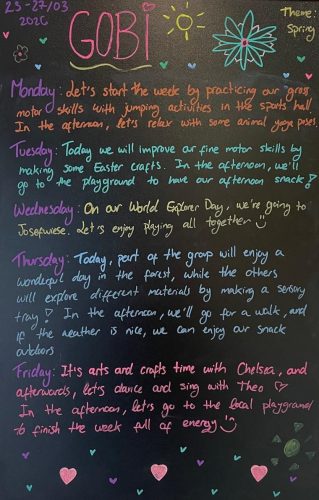 23-27/03
2026
GOBI
Theme:
Spring
Monday: Let's start the week by practicing our gross
motor skills with jumping activities in the sports hall
In the afternoon, let's relax with some animal yoga poses.
Tuesday: Today we will improve our fine motor skills by
making some Easter crafts. In the afternoon, we'll
go to the playground to have our afternoon snack!
Wednesday: On our World Explorer Day, we're going to
Josefwiese. Let's enjoy playing all together
Thursday: Today, part of the group will enjoy a
wonderful day in the forest, while the others
will explore different materials by making a sensory
tray! In the afternoon, we'll go for a walk, and
if the weather is nice, we can enjoy our snack
outdoors
Friday: It's arts and crafts time with Chelsea, and
afterwords, let's dance and sing with Theo
In the afternoon, let's go to the local playground
to finish the week full of energy